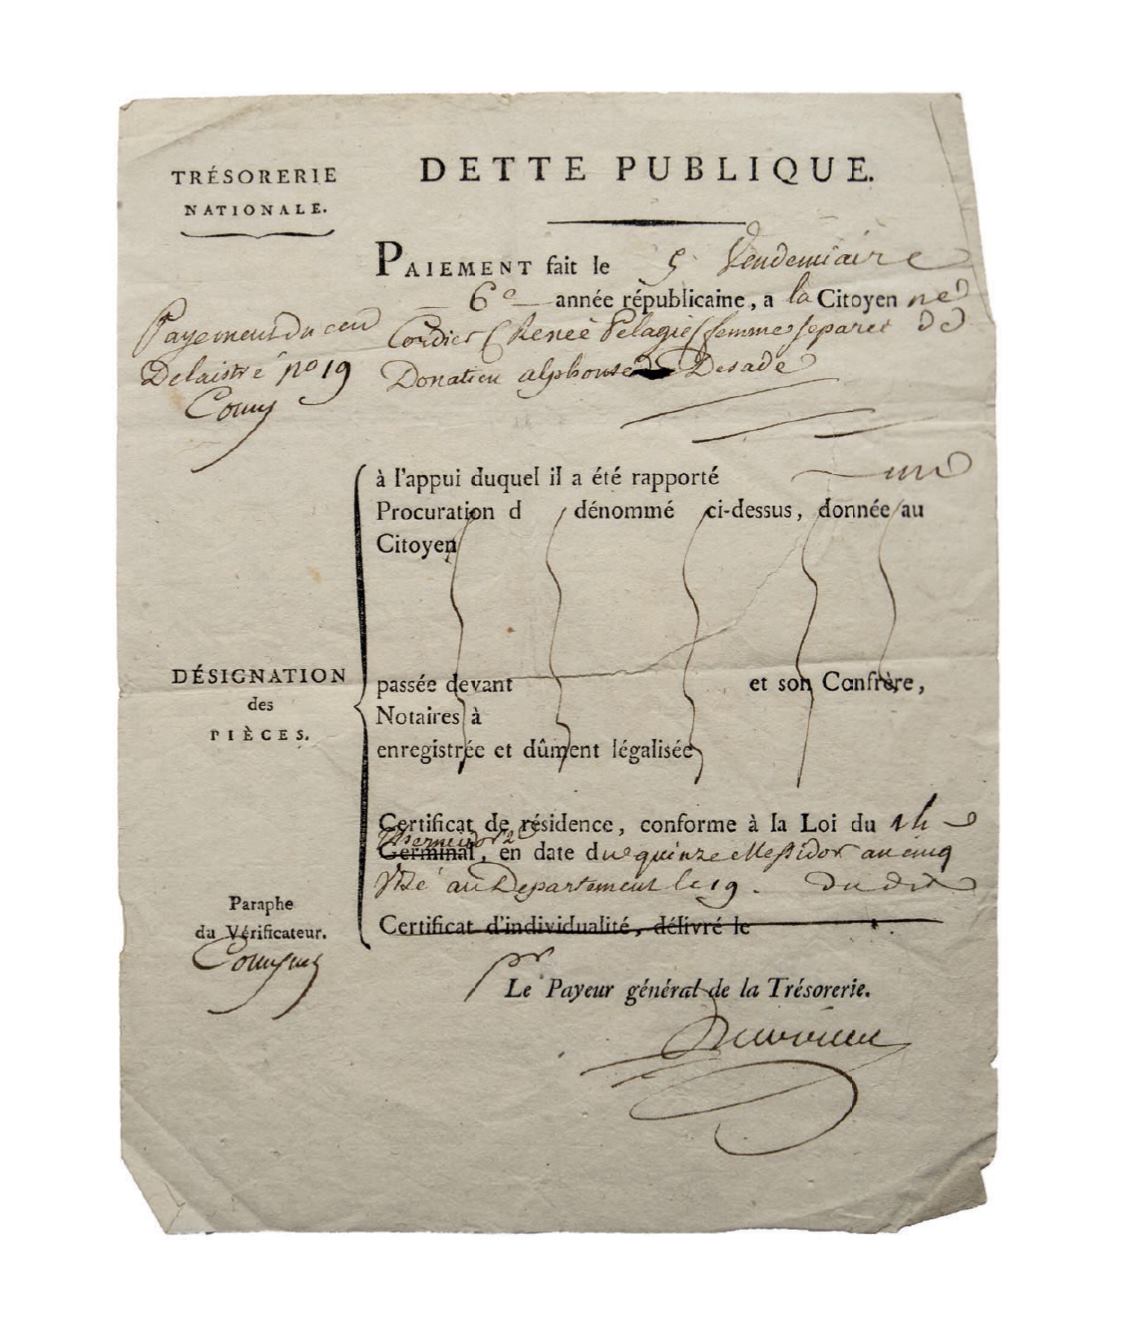 TRÉSORERIE
NATIONALE.
DETTE PUBLIQUE.
PAIEMENT fait le 5 Vendemiaire
6e année républicaine, a la Citoyen ne
Cordier (Reneè Pelagie) femme separeé de
Donatien alphonse Desade
Payement du cen
Delaistre no 19
à l'appui duquel il a été rapporté un
Procuration d dénommé ci-dessus, donnée au
Citoyen
DÉSIGNATION
des
PIÈCES.
passée devant et son Confrère,
Notaires à
enregistrée et dûment légalisée
Certificat de résidence, conforme à la Loi du 1h
Thermidor 2e
Germinal, en date du quinze Messidor an cinq
Visé au Departement le 19. dudit
Certificat d'individualité, délivré le
Paraphe
du Vérificateur.
pr
Le Payeur général de la Trésorerie.